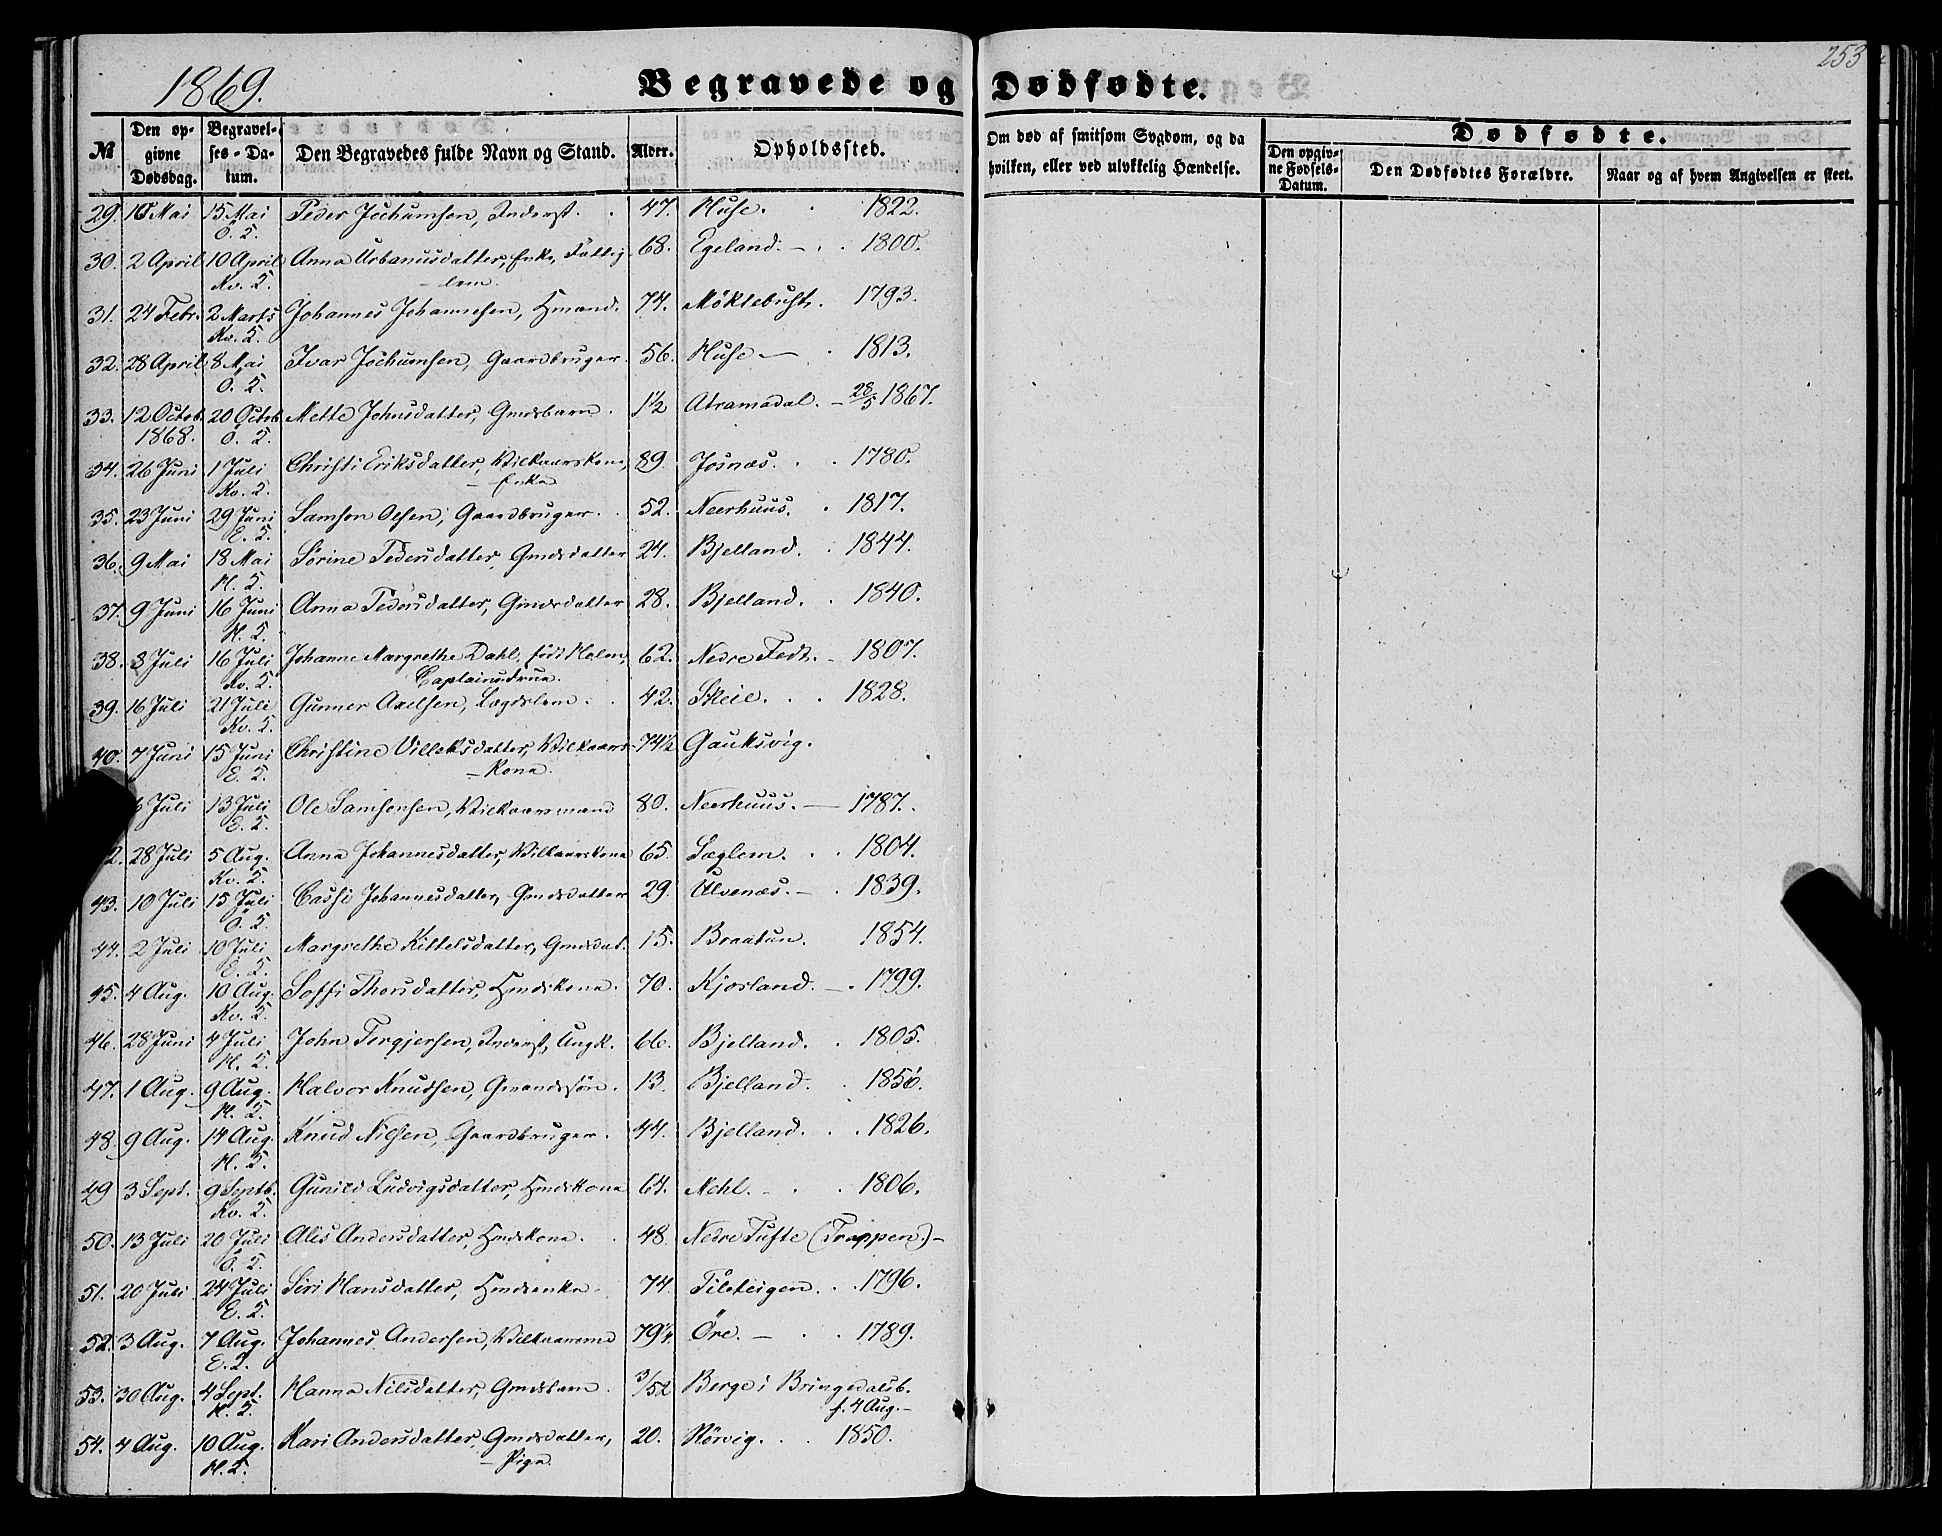 1869.
Begravede og Dødfødte.
253
№
Den opgivne Dødsdag.
Begravelses-Datum.
Den Begravedes fulde Navn og Stand.
Alder.
Opholdssted.
Om død af smitsom Sygdom, og da hvilken, eller ved ulykkelig Hændelse.
Dødfødte.
Den opgivne Fødsels-Datum.
Den Dødfødtes Forældre.
Naar og af hvem Angivelsen er skeet.
29. 10 Mai 15 Mai Peder Jochumsen, Inderst. 47. Huse. 1822.
Ö. S.
30. 2 April 10 April Anna Urbanusdatter, Enke, Fattig- 68. Egeland. 1800.
Kv. S. lem.
31. 24 Febr. 2 Marts Johannes Johannesen, Hmand. 74. Möklebust. 1793.
Kv. S.
32. 28 April 8 Mai Ivar Jochumsen, Gaardbruger. 56. Huse 1813.
Ö. S.
33. 12 Octob. 20 Octob. Mette Johnsdatter, Gmdsbarn. 1½ Atramadal. 28/5 1867.
1868. Ö. S.
34. 26 Juni 1 Juli Christi Eriksdatter, Vilkaarskone, 89. Josnæs. 1780.
Kv. S. Enke
35. 23 Juni 29 Juni Samson Olsen, Gaardbruger. 52. Neerhuus. 1817.
E. S.
36. 9 Mai 18 Mai Sörine Pedersdatter, Gmdsdatter 24. Bjelland. 1844.
H. S.
37. 9 Juni 16 Juni Anna Pedersdatter, Gmdsdatter 28. Bjelland. 1840.
H. S.
38. 8 Juli 16 Juli Johanne Margrethe Dahl, født Holm, 62. Nedre Fedt. 1807.
Kv. S. Captainsfrue.
39. 16 Juli 21 Juli Gunner Axelsen, Lægdslem. 42. Skeie. 1828.
Kv. S.
40. 7 Juni 15 Juni Christine Villeksdatter, Vilkaars- 74½ Gauksvig.
E. S. kone.
6 Juli 13 Juli Ole Samsonsen, Vilkaarsmand 80. Neerhuus. 1787.
E. S.
2. 28 Juli 5 Aug. Anna Johannesdatter, Vilkaarskone 65. Sæglem. 1804.
Kv. S.
43. 10 Juli 15 Juli Cassi Johannesdatter, Gmdsdatter 29. Ulvenæs. 1839.
Ö. S.
44. 2 Juli 10 Juli Margrethe Kittelsdatter, Gmdsdat. 15. Braatun. 1854.
E. S.
45. 4 Aug. 10 Aug. Soffi Thorsdatter, Hmdskone. 70. Kjosland. 1799.
Kv. S.
46. 28 Juni 4 Juli John Tergjersen, Inderst, Ungk. 66. Bjelland. 1805.
H. S.
47. 1 Aug. 9 Aug. Halvor Knudsen, Gmandssön. 13. Bjelland. 1856.
H. S.
48. 9 Aug. 14 Aug. Knud Nilsen, Gaardbruger. 44. Bjelland. 1826.
H. S.
49 3 Sept. 9 Septb. Gunild Ludvigsdatter, Hmdskone 64. Mehl. 1806.
Kv. S.
50. 13 Juli 20 Juli Ales Andersdatter, Hmdskone. 48. Nedre Tufte (Trappen)
Ö. S.
51. 20 Juli 24 Juli Siri Hansdatter, Hmdsenke. 74. Tileteigen. 1796.
E. S.
52. 3 Aug. 7 Aug. Johannes Andersen, Vilkaarsmd 79¼ Öre. 1789.
E. S.
53. 30 Aug. 4 Sept. Hanna Nilsdatter, Gmdsbarn. 3/52 Berge i Bringedalsb.
H. S. f. 4 Aug.
54. 4 Aug. 10 Aug. Kari Andersdatter, Gmdsdatter, 20. Hörvig. 1850.
H. S. Pige.